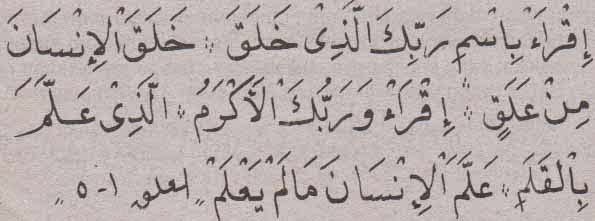 إِقْرَاءْ بِاسْمِ رَبِّكَ الَّذِىْ خَلَقَ ∴ خَلَقَ اْلإِنْسَانَ
مِنْ عَلَقٍ ∴ إِقْرَاءْ وَرَبُّكَ اْلأَكْرَمُ ∴ الَّذِىْ عَلَّمَ
بِاْلقَلَمِ ∴ عَلَّمَ اْلإِنْسَانَ مَالَمْ يَعْلَمْ ∴ العلق ١-٥ ∴